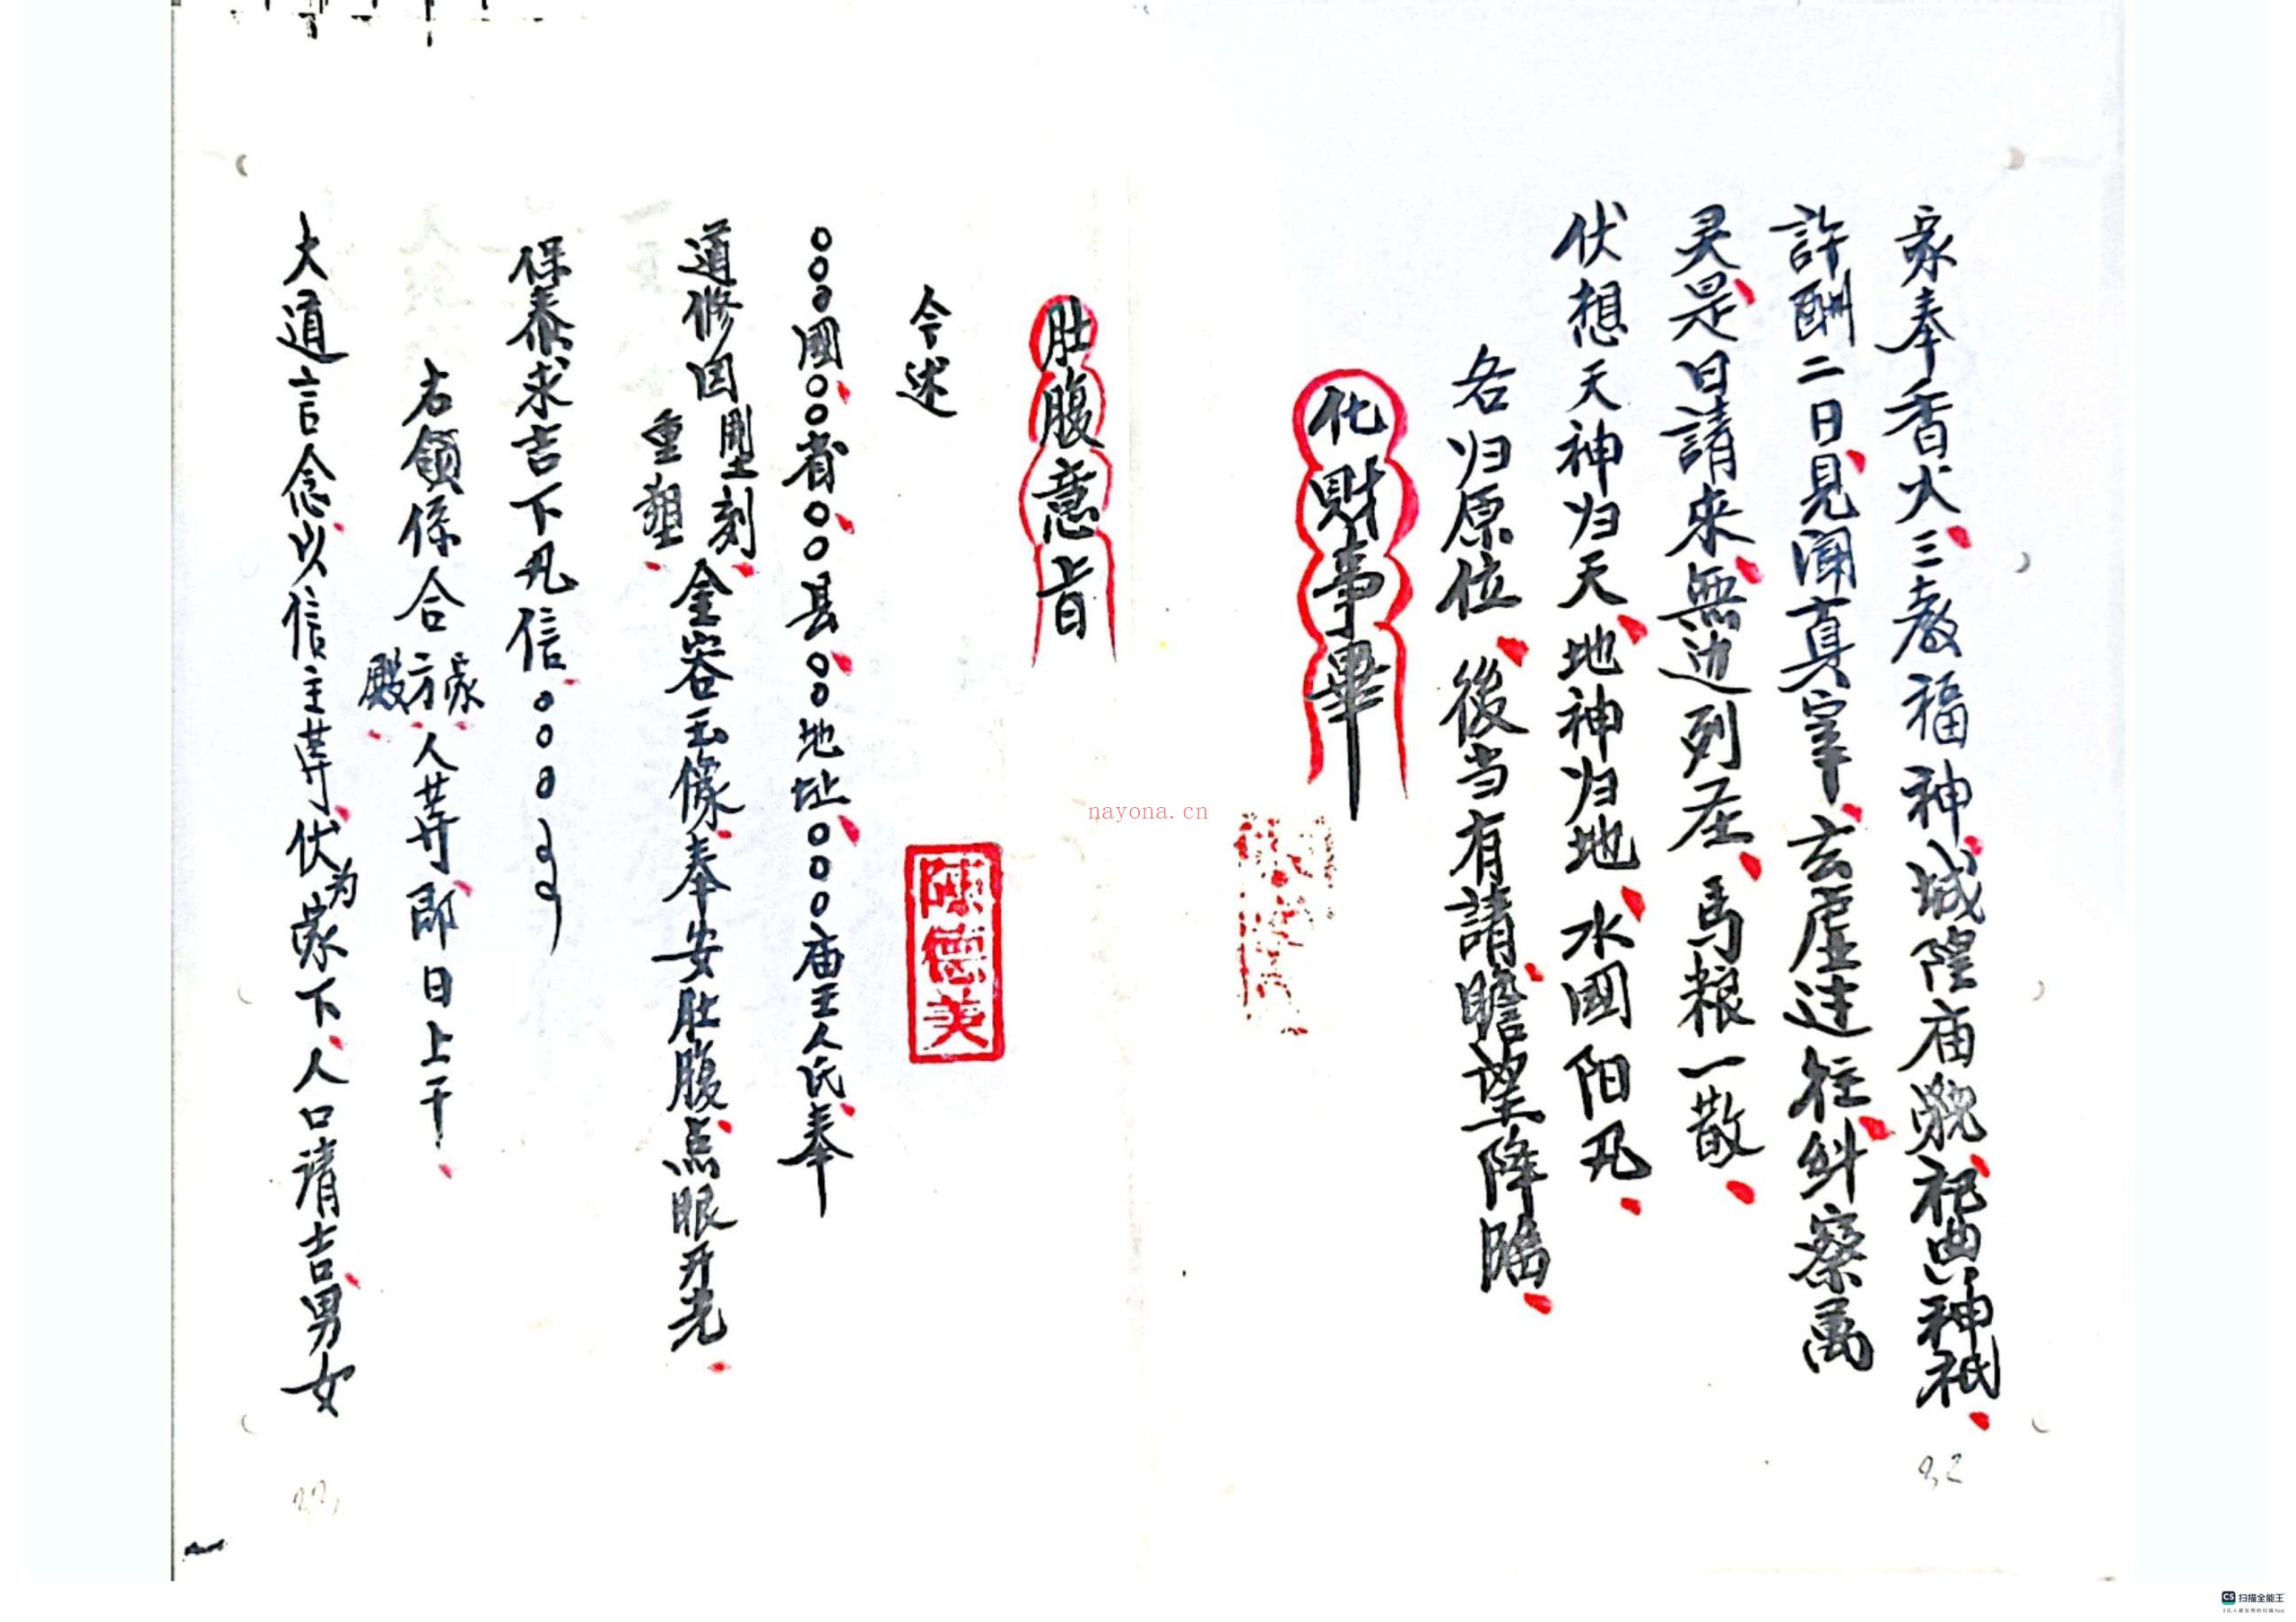 家奉香火三教福神城隍庙貌祀典神祇
許酬二日見闻真宰玄虚迋往糾察萬
灵是日請來無边列圣馬粮一散
伏想天神归天地神归地水國阳凡
各归原位後当有請瞻望降臨
化財事畢
肚腹意旨
今述
陳德美
○○○國○○省○○县○○地址○○○庙王人氏奉
道修因雕刻
重塑
金容玉像奉安肚腹点眼开光
保泰求吉下凡信○○○
右領係合家
方
殿
人等即日上干
大道言念以信主等伏为家下人口请吉男女
32
33
nayona.cn
CS 扫描全能王